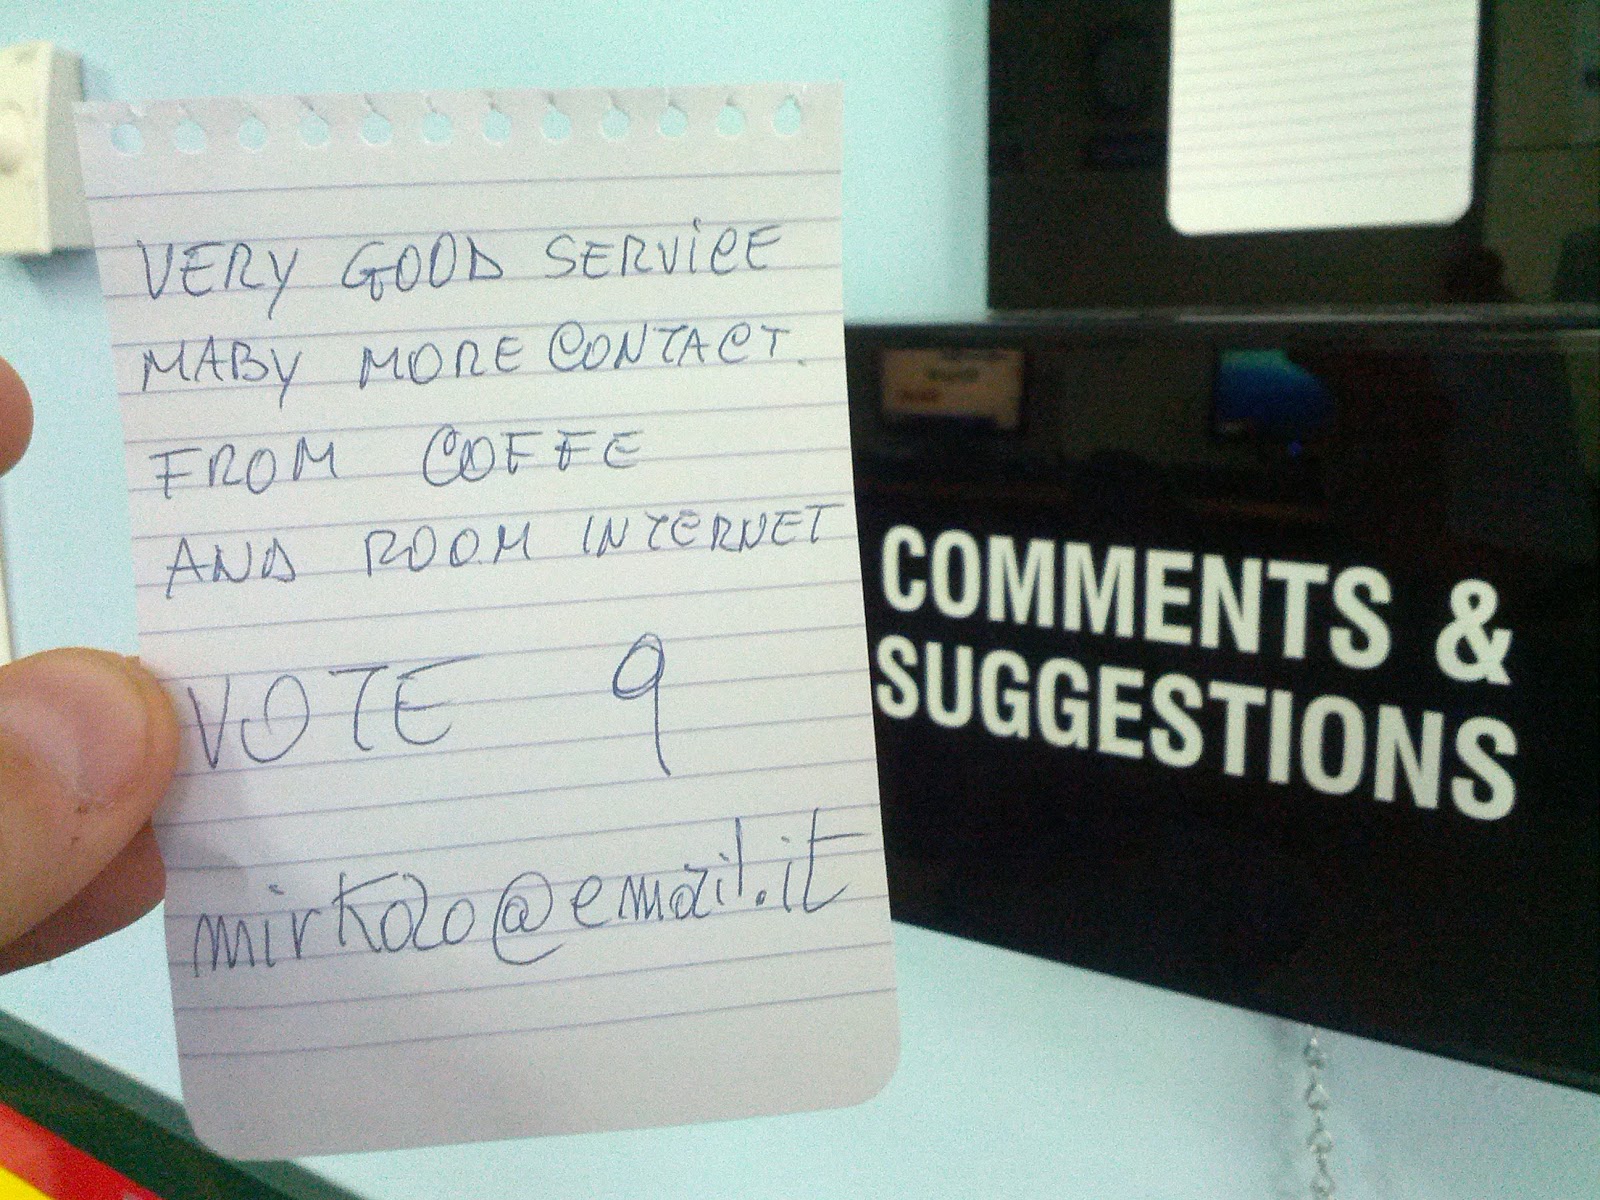 VERY GOOD SERVICE
MABY MORE CONTACT.
FROM COFFE
AND ROOM INTERNET
VOTE 9
mirko2o@email.it
COMMENTS &
SUGGESTIONS